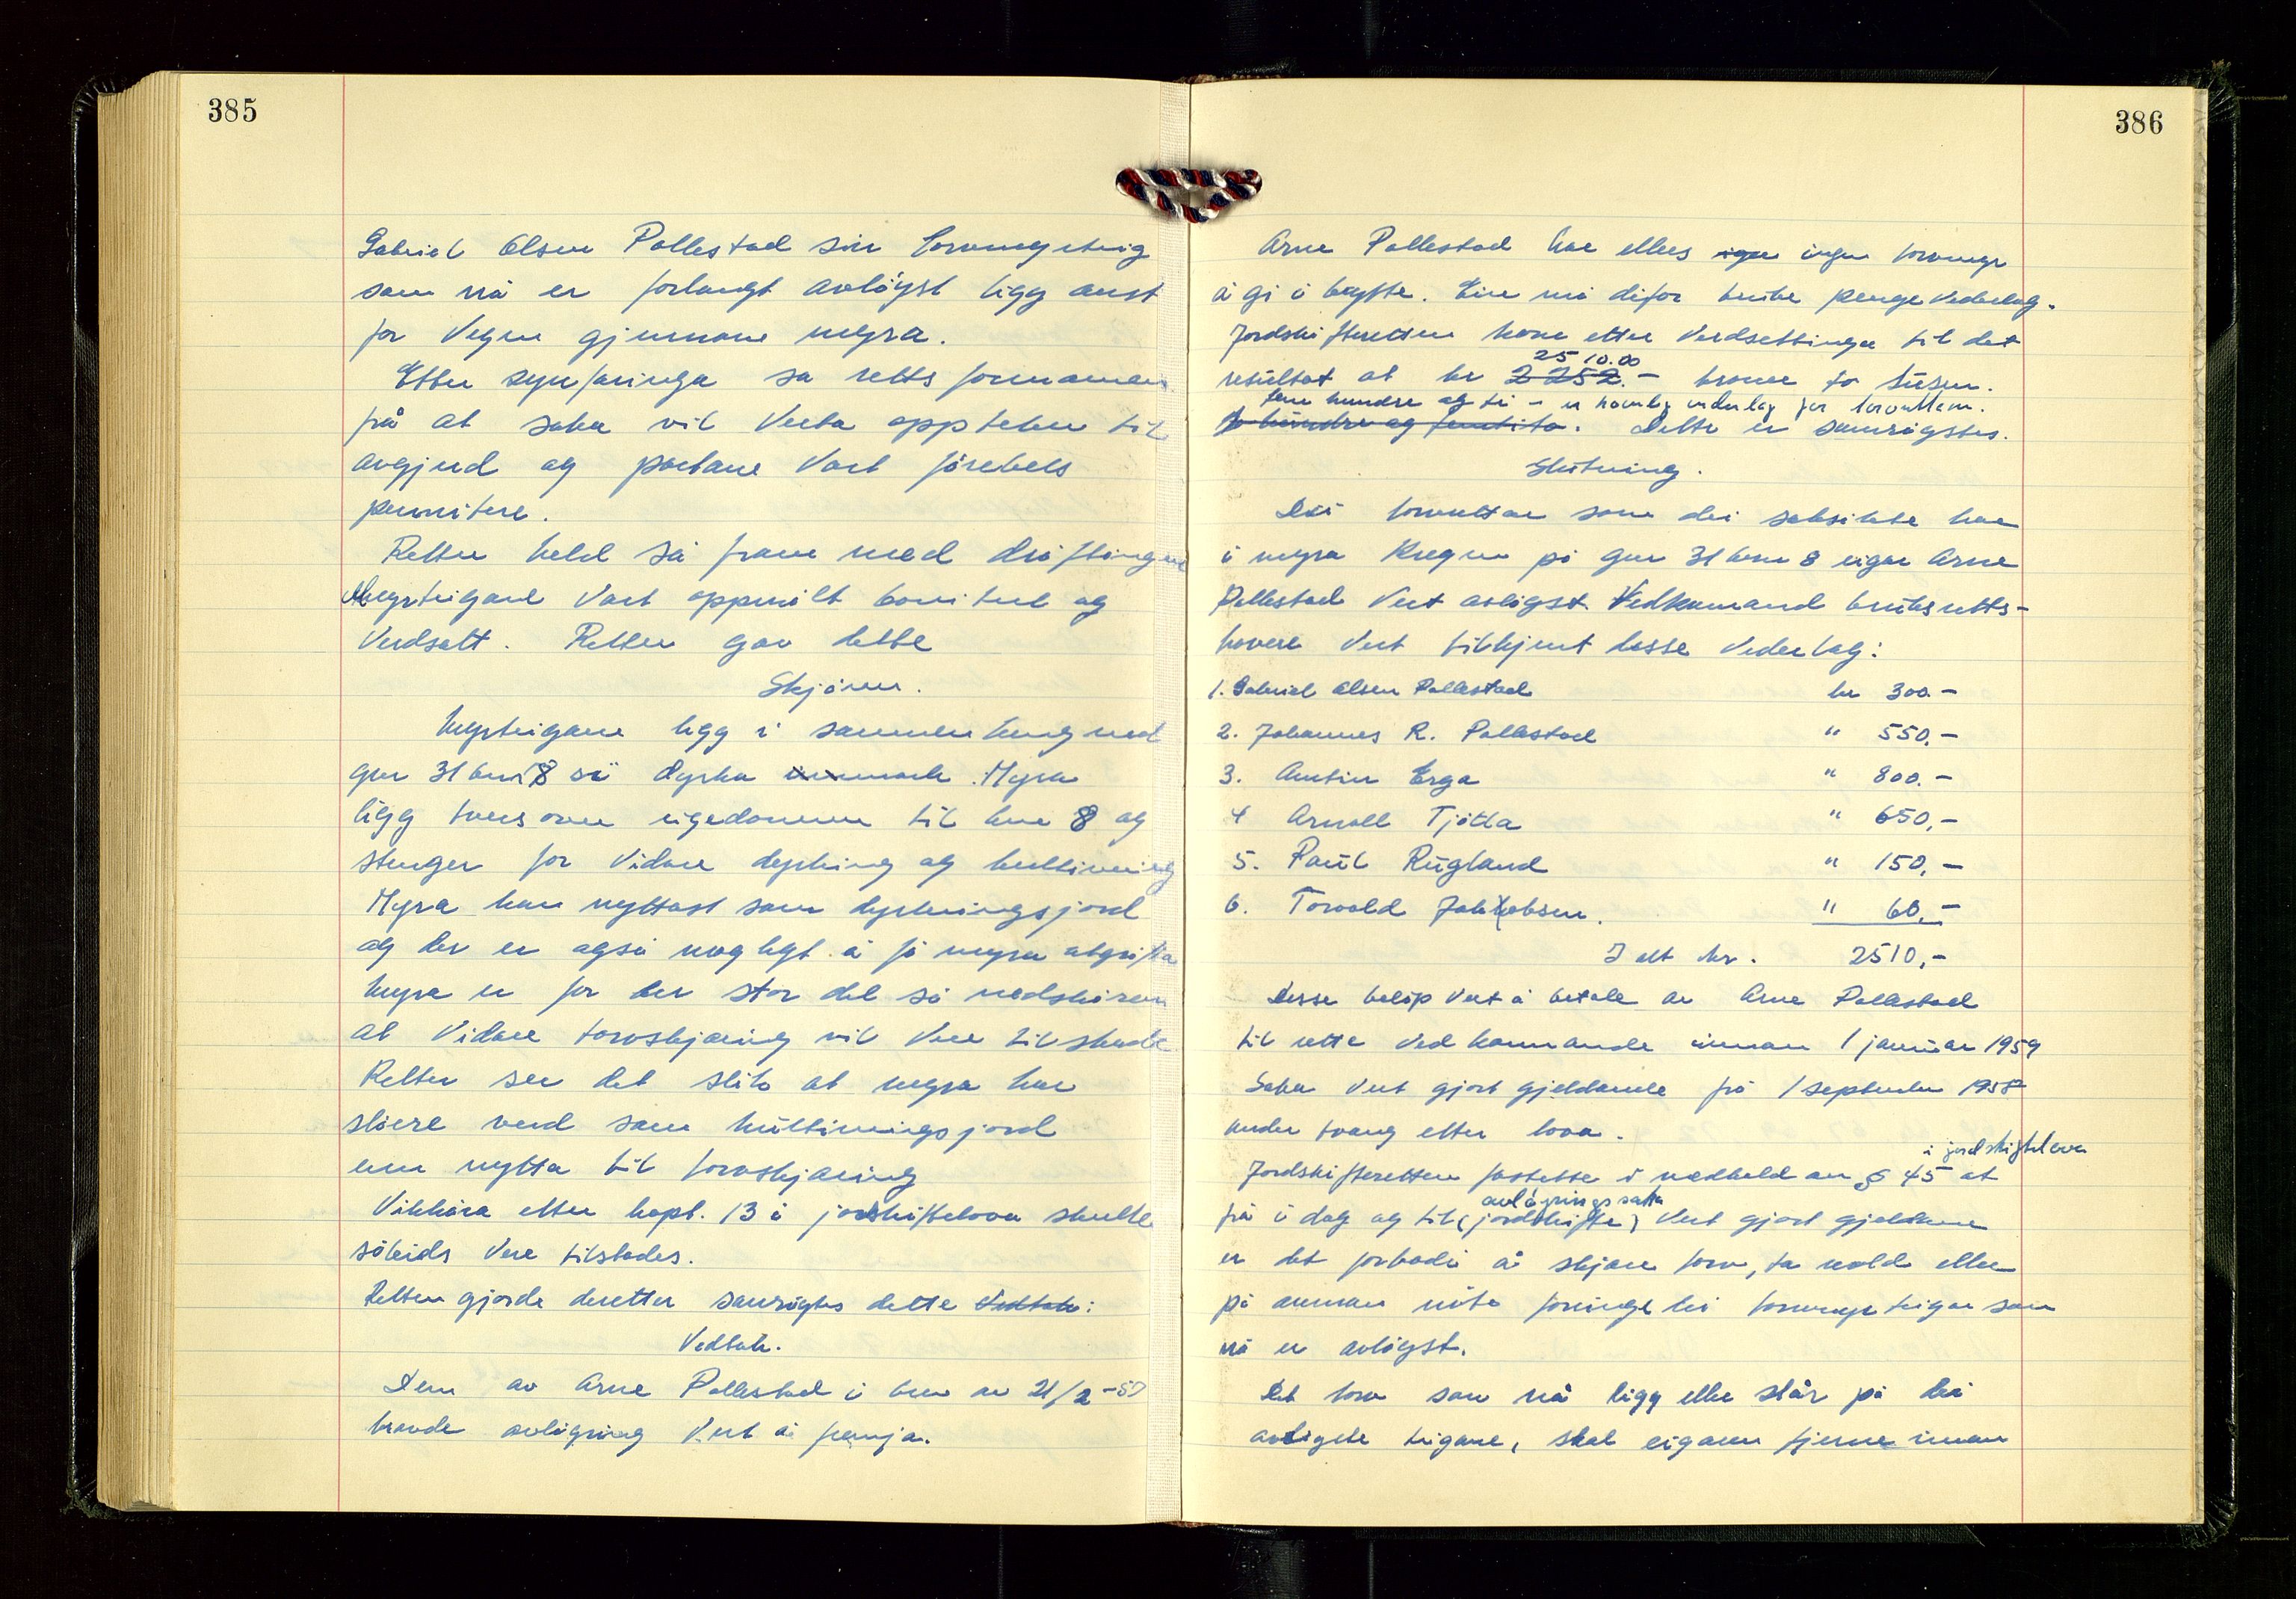 385
Gabriel Olsen Pollestad sin torvmyrteig
som nå er forlangt avløyst ligg aust
for vegen gjennom myra.
Etter synfaringa sa retts formannen
frå at saka vil verta oppteken til
avgjerd og partane vart førebels
permitere.
Retten held så fram med drøftingane
Myrteigane vart oppmålt bonitert og
verdsett. Retten gav dette
Skjønn.
Myrteigane ligg i sammenheng med
gnr 31 bnr 8 si dyrka innmark. Myra
ligg tvers over eigedomen til bnr 8 og
stenger for vidare dyrking og kultivering
Myra kan nyttast som dyrkningsjord
og der er også mogligt å få myra avgrøfta
Myra er for ein stor del så nedskåren
at vidare torvskjæring vil vere til skade
Retten ser det slik at myra har
større verd som kultiveringsjord
enn nytta til torvskjæring
Vilkåra etter kapt. 13 i jordskiftelova skulle
såleids vere tilstades.
Retten gjorde deretter samrøystes dette Vedtak:
Vedtak.
Den av Arne Pollestad i brev av 21/2-57
kravde avløysing vert å fremja.
386
Arne Pollestad har elles ingen torvmyr
å gi i bytte. Ein må difor bruke pengevederlag.
Jordskifteretten kom etter verdsettinga til det
25 10.00
resultat at kr 2252.- kroner to tusen.
fem hundre og ti - er høveleg vederlag for torvrettane.
to hundre og femtito. Dette er samrøystes.
Slutning.
Dei torvrettar som dei saksøkte har
i myra Kregen på gnr 31 bnr 8 eigar Arne
Pollestad vert avløyst. Vedkomande bruksretts-
havere vert tilkjent desse vederlag:
1. Gabriel Olsen Pollestad kr 300.-
2. Johannes R. Pollestad " 550.-
3. Amtin Erga " 800.-
4 Arnold Tjøtta " 650,-
5. Paul Rugland " 150,-
6. Torvald Jakobsen. " 60,-
I alt kr. 2510,-
Desse beløp vert å betale av Arne Pollestad
til rette vedkommande innan 1 januar 1959
Saka vert gjort gjeldande frå 1 september 1958
under tvang etter lova.
i jordskiftelova
Jordskifteretten fastsette i medhald av § 45 at
avløysingssaka
frå i dag og til (jordskifte) vert gjort gjeldane
er det forbode å skjære torv, ta mold eller
på annan måte forringe dei torvmyrteigar som
nå er avløyst.
Det torv som nå ligg eller står på dei
avløyste teigane, skal eigaren fjerne innan